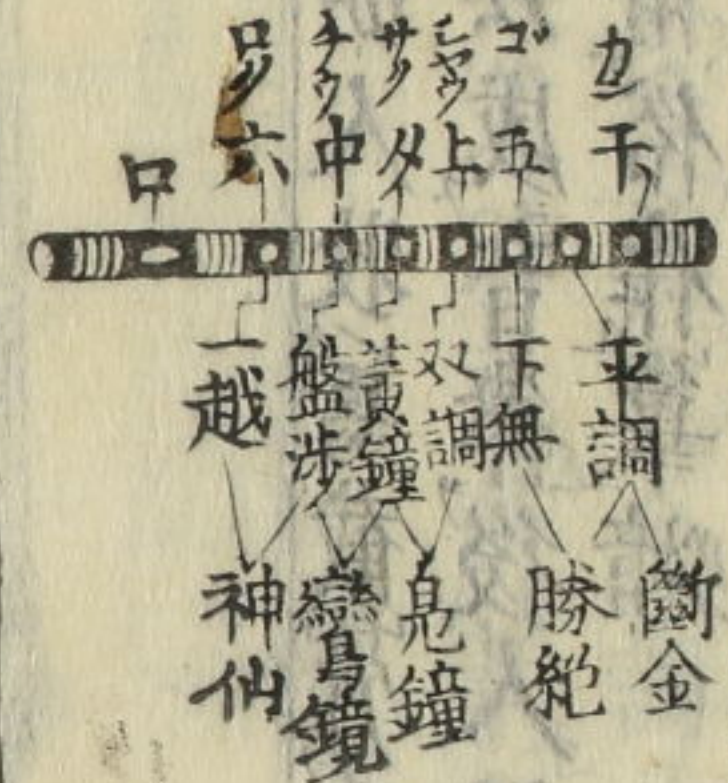 カン 干
ゴ 五
シヤウ 上
サク 夕
チウ 中
ロク 六
口
平調
下無
双調
黃鐘
盤渉
一越
斷金
勝絶
鳧鐘
鸞鏡
神仙